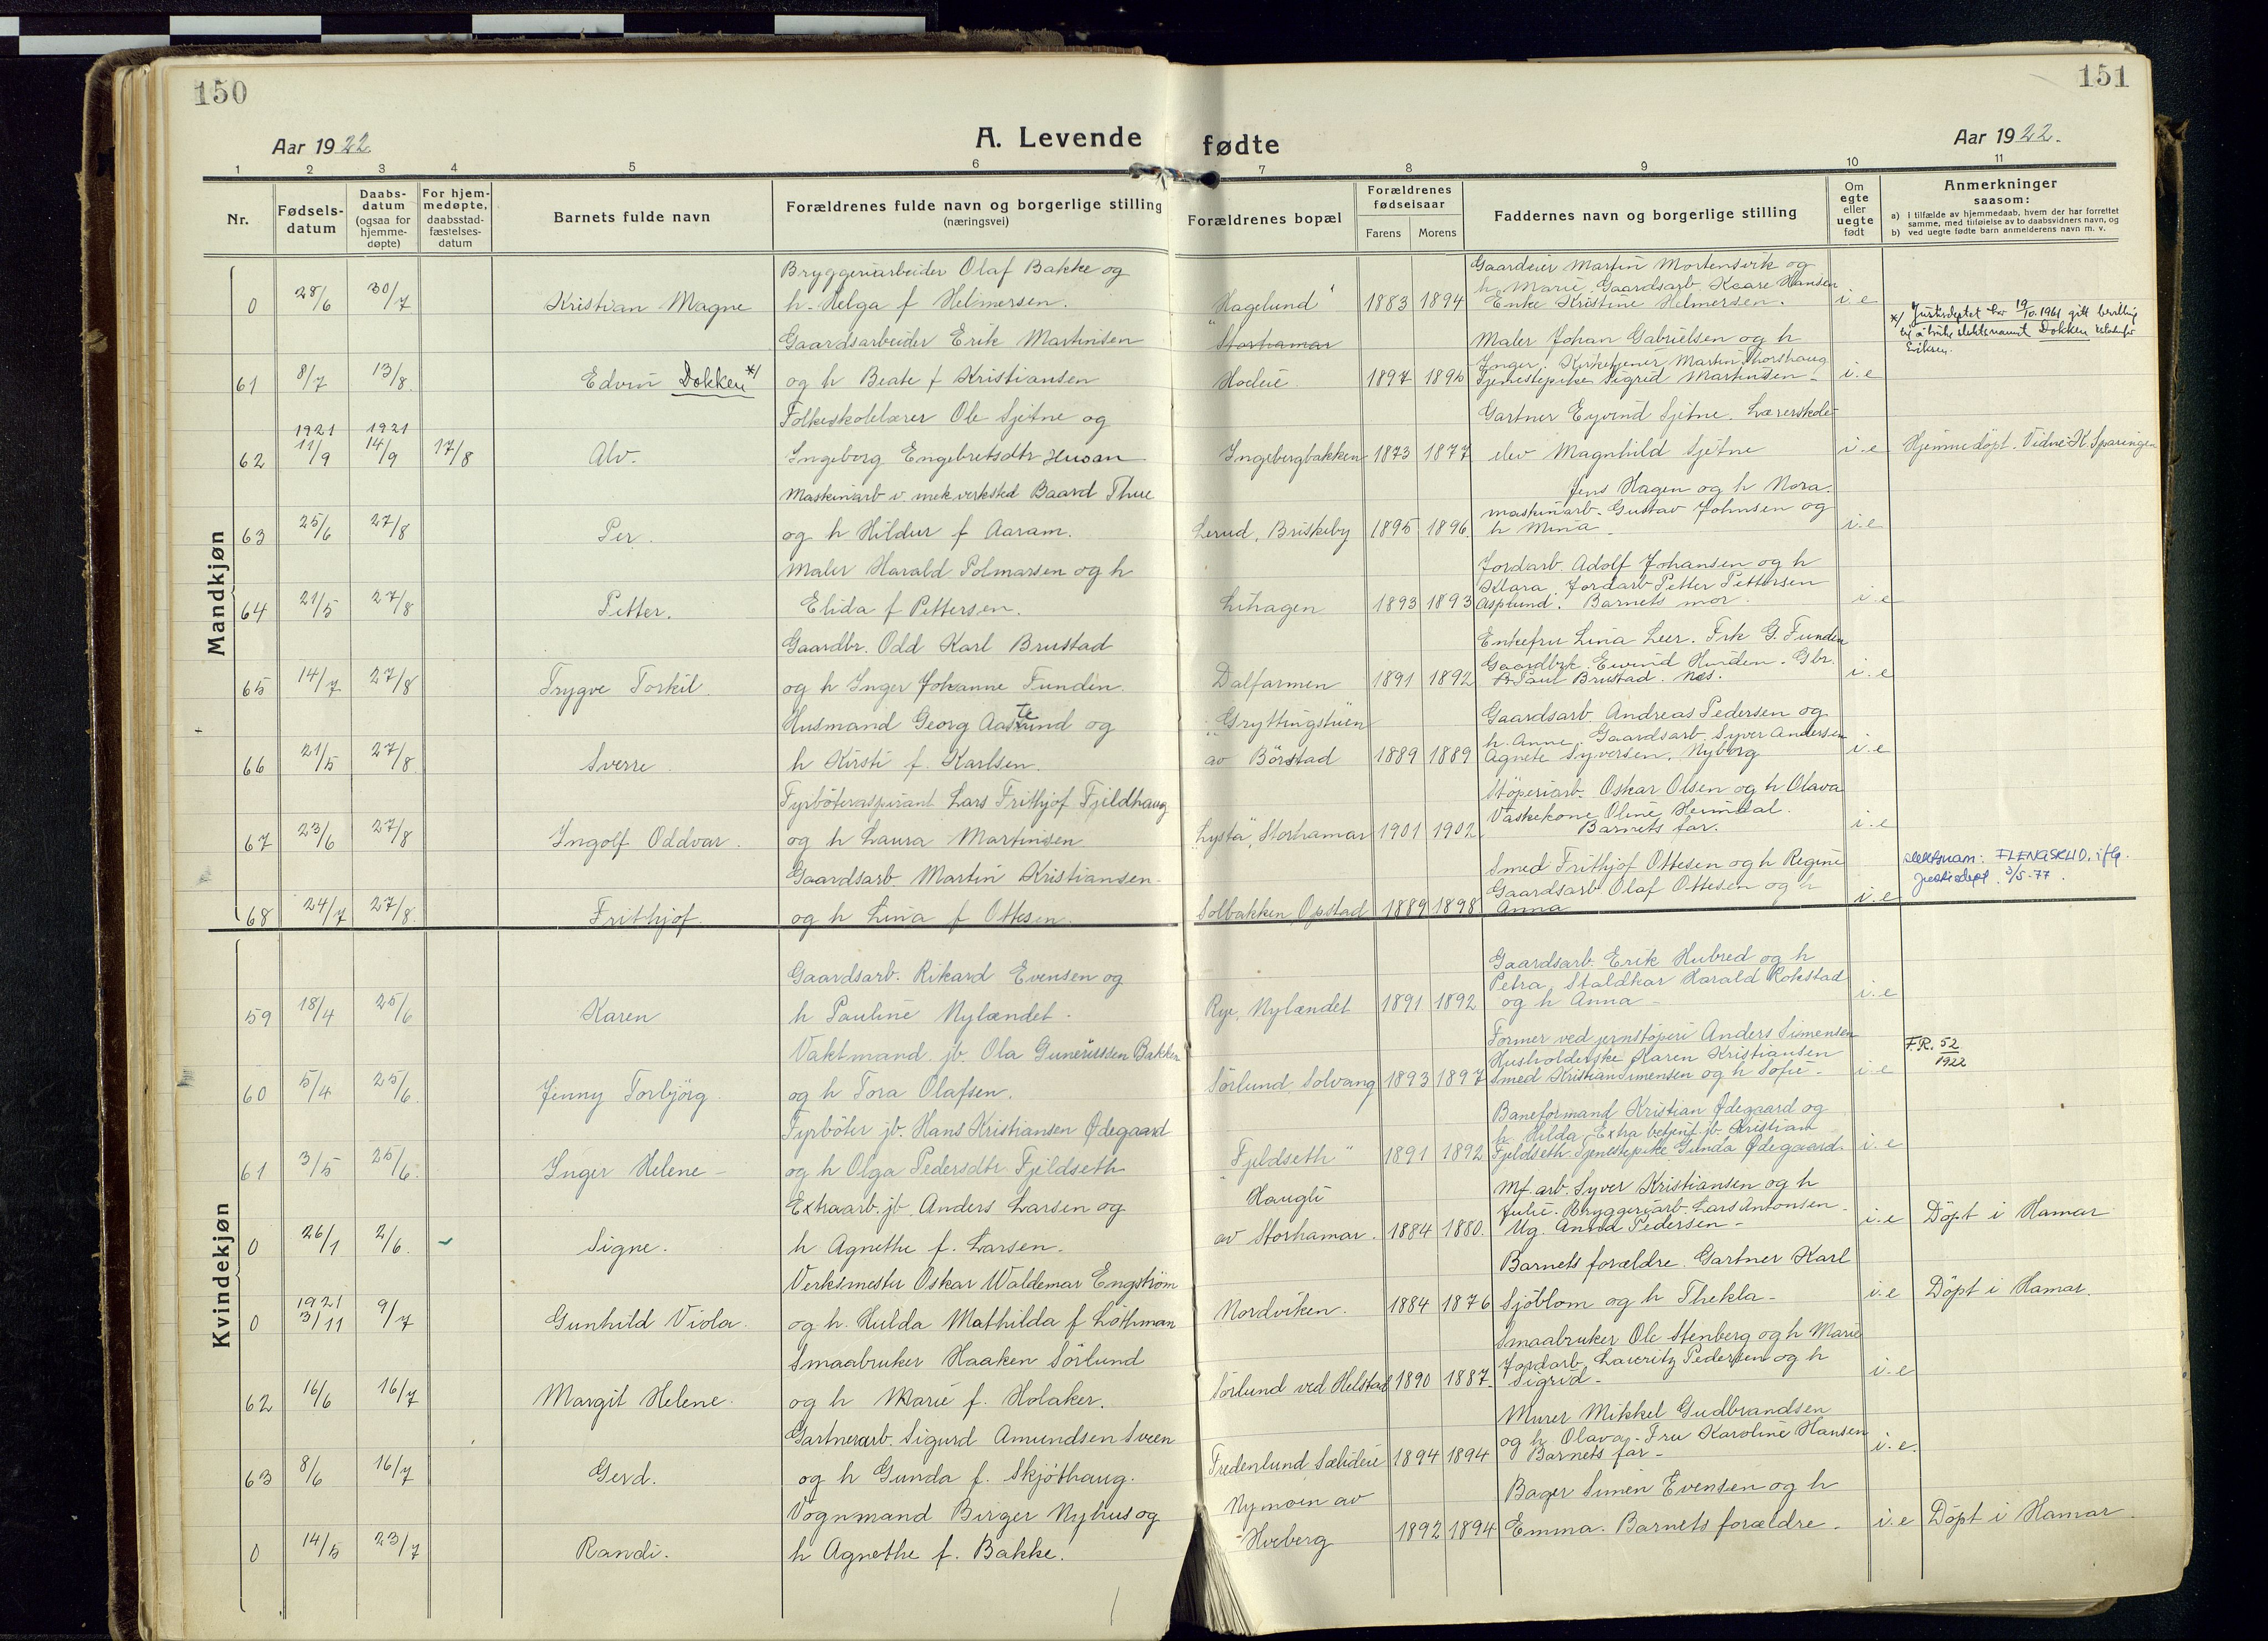 150
151
Aar 1922
A. Levende
fødte
Aar 1922.
1 2 3 4 5 6 7 8 9 10 11
Nr.
Fødsels-
datum
Daabs-
datum
(ogsaa for
hjemme-
døpte)
For hjem-
medøpte,
daabsstad-
fæstelses-
datum
Barnets fulde navn
Forældrenes fulde navn og borgerlige stilling
(næringsvei)
Forældrenes bopæl
Forældrenes
fødselsaar
Farens Morens
Faddernes navn og borgerlige stilling
Om
egte
eller
uegte
født
Anmerkninger
saasom:
a) i tilfælde av hjemmedaab, hvem der har forrettet
samme, med tilføielse av to daabsvidners navn, og
b) ved uegte fødte barn anmelderens navn m. v.
Mandkjøn
Bryggeriarbeider Olaf Bakke og
0 28/6 30/7 Kristian Magne h. Helga f Helmersen.
"Hagelund" 1883 1894
Storhamar
Gaardeier Martin Mortensvik og
h Marie. Gaardsarb. Kaare Hansen
Enke Kristine Helmersen. i.e
Gaardsarbeider Erik Martinsen
61 8/7 13/8 Edvin Dokken *) og h Beate f Kristiansen
1897 1896
Maler Johan Gabrielsen og h
Inger, Kirketjener Martin Thorshaug
Tjenestepike Sigrid Martinsen i.e
*) Justisdeptet har 19/10.1961 gitt bevilling
til å bruke slektsnavnet Dokken istedenfor
Eriksen.
Folkeskolelærer Ole Sjetne og
62 1921 11/9 1921 14/9 17/8 Alv. Ingeborg Engebretsdtr Husan
Ingebergbakken 1873 1877
Gartner Eyvind Sjetne. Lærerskole-
elev Magnhild Sjetne i.e
Hjemmedøpt. Vidne: K. Sparingen
Maskinarb v mek verksted Baard Thue
63 25/6 27/8 Per. og h Hildur f Aaram.
Lerud, Briskeby 1895 1896
Jens Hagen og h Nora.
maskinarb. Gustav Johnsen og
h Mina i.e
Maler Harald Polmarsen og h
64 21/5 27/8 Petter. Elida f Pettersen.
Lihagen 1893 1893
Jordarb. Adolf Johansen og h
Klara, Jordarb Petter Pettersen
Asplund. Barnets mor. i.e
Gaardbr. Odd Karl Brustad
65 14/7 27/8 Trygve Torkil. og h Inger Johanne Funden.
Dalfarmen 1891 1892
Enkefru Lina Leer. Frk G. Funden
Gaardbrk. Eivind Huiden. Gbr.
Paul Brustad. Nes. i.e
Husmand Georg Aastelund og
66 21/5 27/8 Sverre h Kirsti f. Karlsen.
"Gryttingstuen
av Börstad 1889 1889
Gaardsarb Andreas Pedersen og
h. Anne, Gaardsarb. Syver Andersen
Agnete Syversen, Nyborg i.e
Fyrböteraspirant Lars Frithjof Fjeldhaug
67 23/6 27/8 Ingolf Oddvar. og h Laura Martinsen
"Lysta", Storhamar 1901 1902
Stöperiarb. Oskar Olsen og h Olava
Vaskekone Oline Heimdal.
Barnets far. i.e
Gaardsarb Martin Kristiansen
68 24/7 27/8. Frithjof. og h Lina f Ottesen.
Solbakken, Opstad 1889 1898
Smed Frithjof Ottesen og h Regine
Gaardsarb Olaf Ottesen og h
Anna i.e
slektsnavn: FLENGSLID, iflg.
justisdept. 3/5-77.
Kvindekjøn
Gaardsarb. Rikard Evensen og
59 18/4 25/6 Karen h Pauline Nylændet.
Rye, Nylændet 1891 1892
Gaardsarb. Erik Hubred og h
Petra, Staldkar Harald Rokstad
og h Anna i.e
Vaktmand jb. Ola Gunerussen Bakken
60 5/4 25/6. Jenny Torbjörg. og h Tora Olafsen.
Sörlund, Solvang 1893 1897
Former ved jernstöperi Anders Simensen
Husholderske Karen Kristiansen
Smed Kristian Simensen og h Sofie i.e
F.R. 52/1922
Fyrböter jb. Hans Kristiansen Ødegaard
61 3/5 25/6. Inger Helene og h Olga Pedersdtr Fjeldseth
"Fjeldseth" 1891 1892
Baneformand Kristian Ødegaard og
h. Hilda, Extra betjent jb. Kristian
Fjeldseth Tjenestepike Gunda Ødegaard. i.e
Extraarb. jb. Anders Larsen og
0 26/1 2/6. Signe. h Agnethe f. Larsen.
Haugli
av Storhamar. 1884 1880.
Mf. arb. Syver Kristiansen og h
Julie. Bryggeriarb. Lars Antonsen.
Ug. Anna Pedersen i.e Döpt i Hamar
Verksmester Oskar Waldemar Engström
0 1921 3/11 9/7 Gunhild Viola. og h. Hulda Mathilda f Löthman
Nordviken. 1884 1876
Barnets forældre. Gartner Karl
Sjöblom og h Thekla i.e Döpt i Hamar.
Smaabruker Haaken Sörlund
62 16/6 16/7 Margit Helene. og h Marie f. Holaker.
Sörlund ved Helstad 1890 1887.
Smaabruker Ole Stenberg og h Marie
Jordarb. Lauritz Pedersen og h
Sigrid i.e
Gartnerarb. Sigurd Amundsen Sveen
63 8/6 16/7 Gerd. og h Gunda f. Skjöthaug.
Fredenlund Sælideie 1894 1894
Murer Mikkel Gudbrandsen
og h. Olava. Fru Karoline Hansen
Barnets far i.e.
Vognmand Birger Nyhus og
0 14/5 23/7 Randi. h Agnethe f. Bakke.
Nymoen av
Hverberg 1892 1894
Bager Simen Evensen og h
Emma. Barnets forældre. i.e Döpt i Hamar.